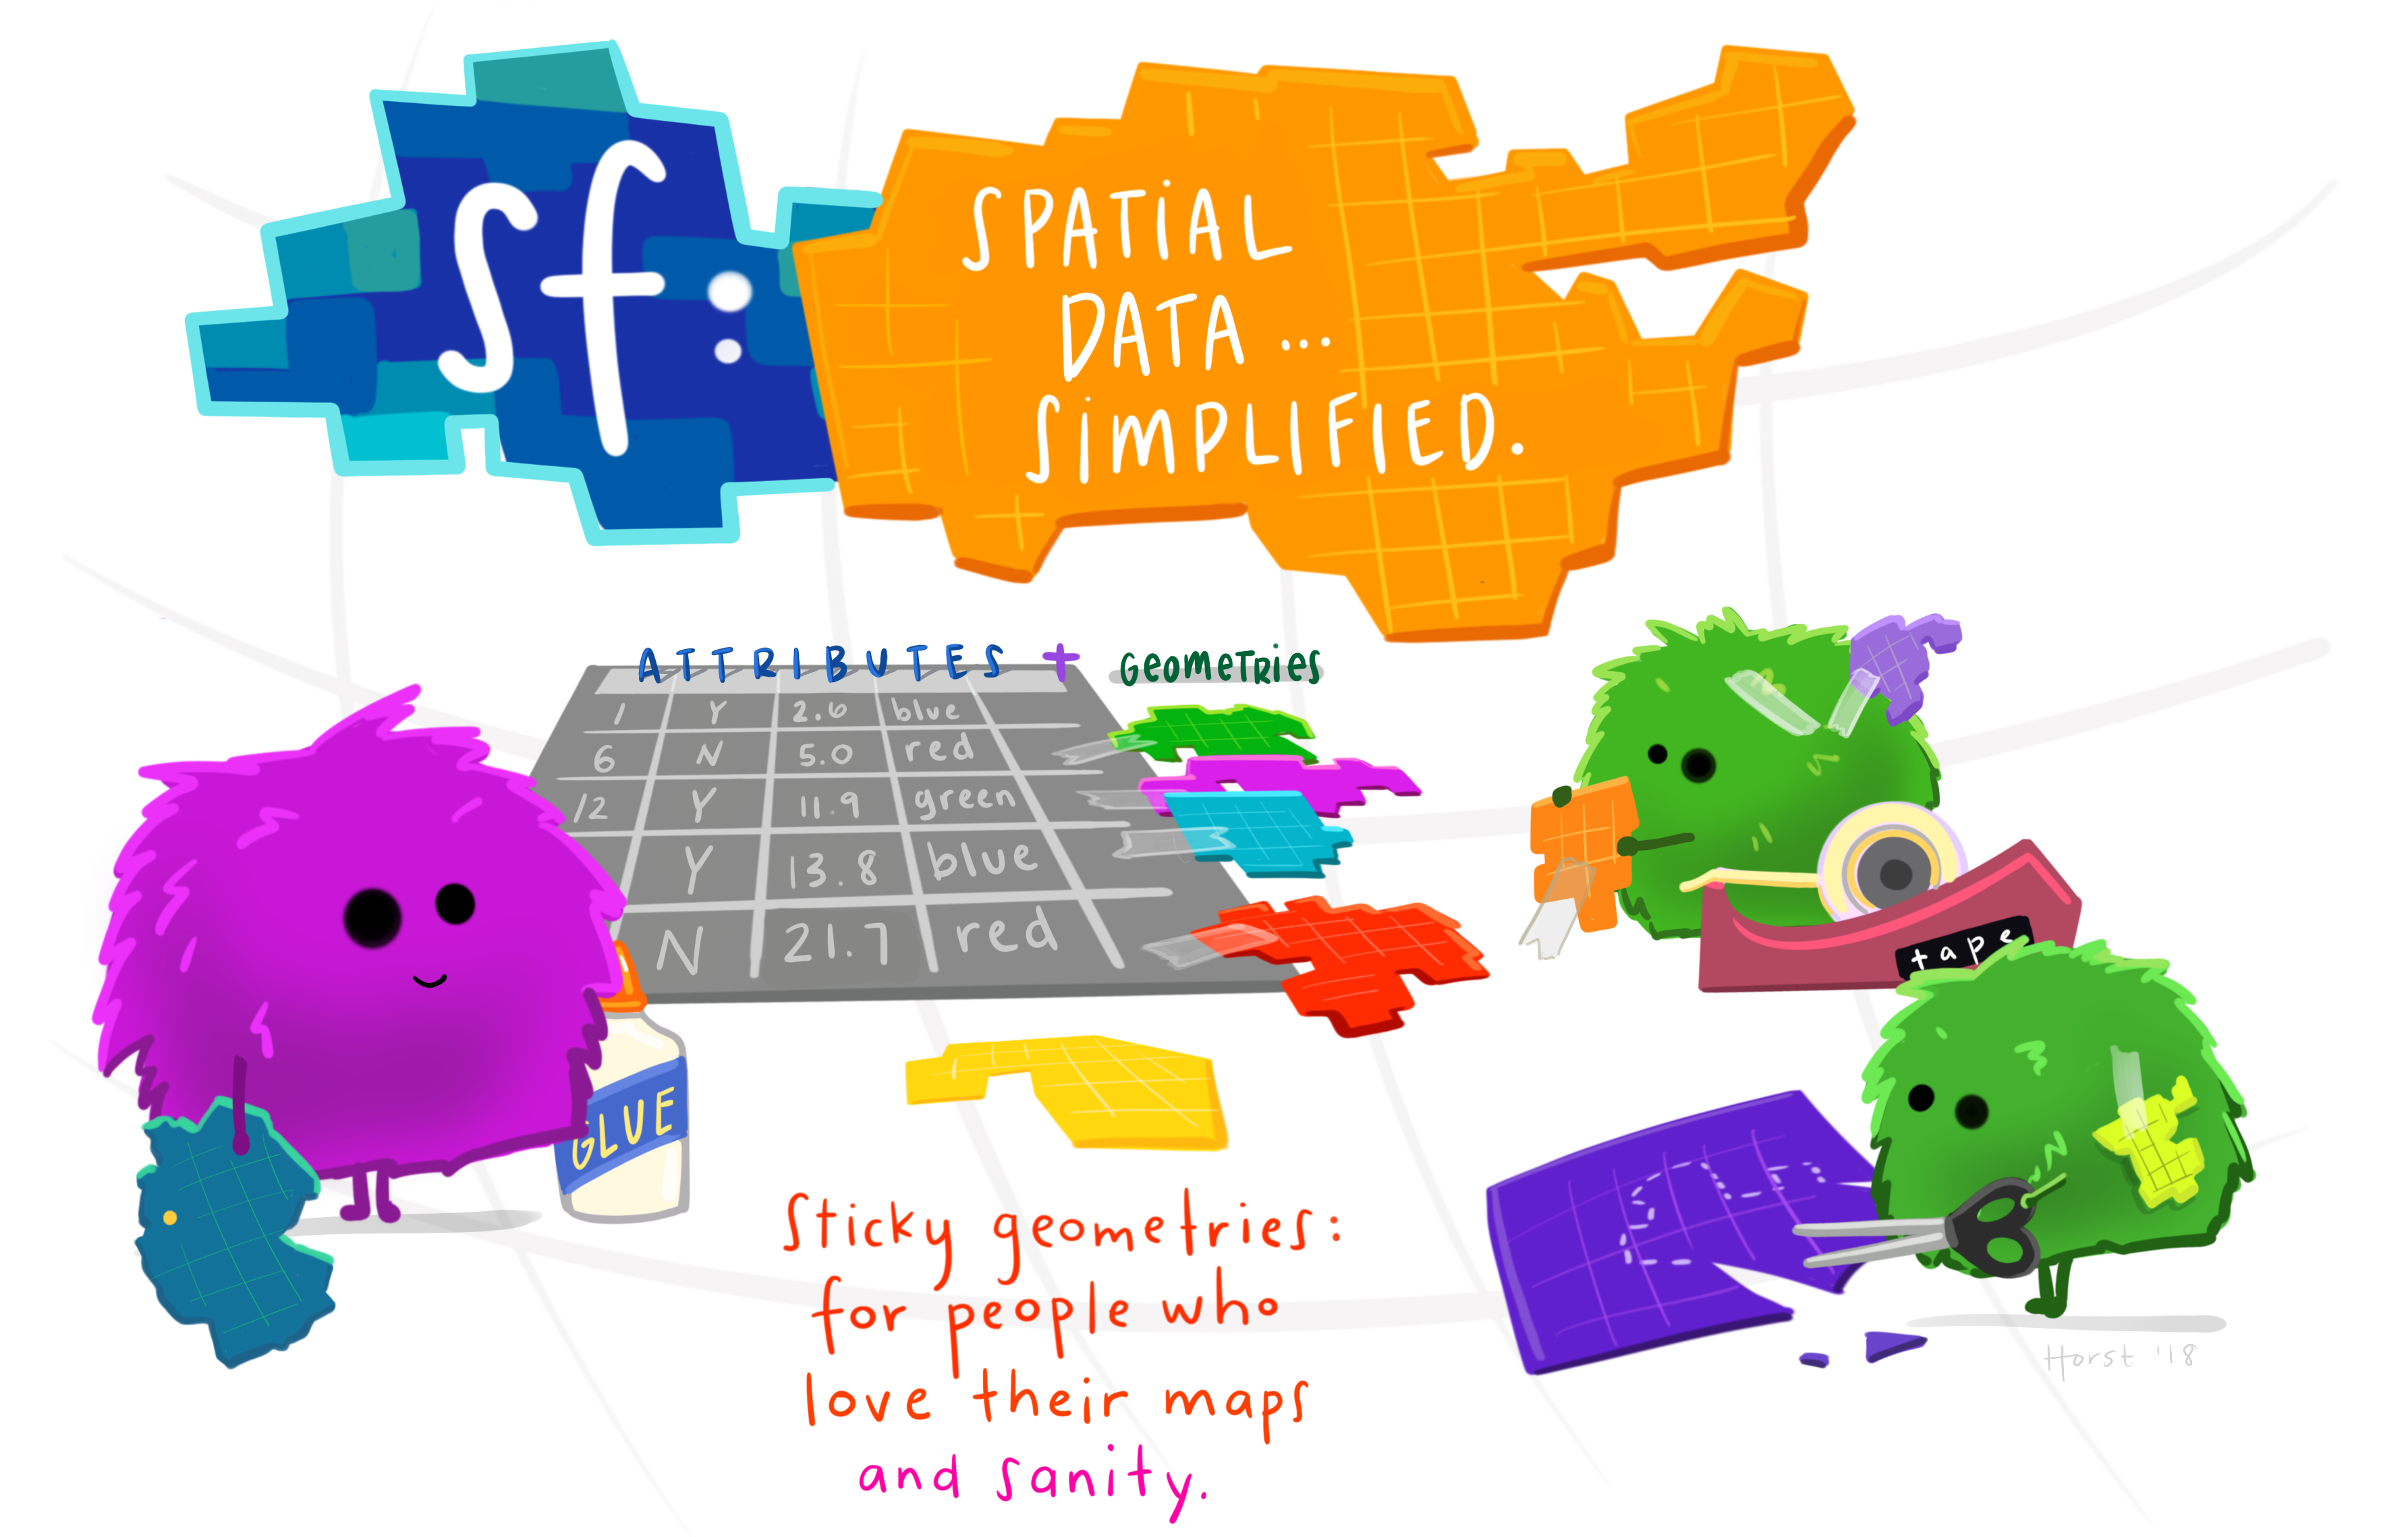 sf:
SPATIAL
DATA ...
SIMPLIFIED.
ATTRIBUTES + GEOMETRIES
1 Y 2.6 blue
6 N 5.0 red
12 Y 11.9 green
Y 13.8 blue
N 21.7 red
tape
GLUE
Sticky geometries:
for people who
love their maps
and sanity.
Horst '18